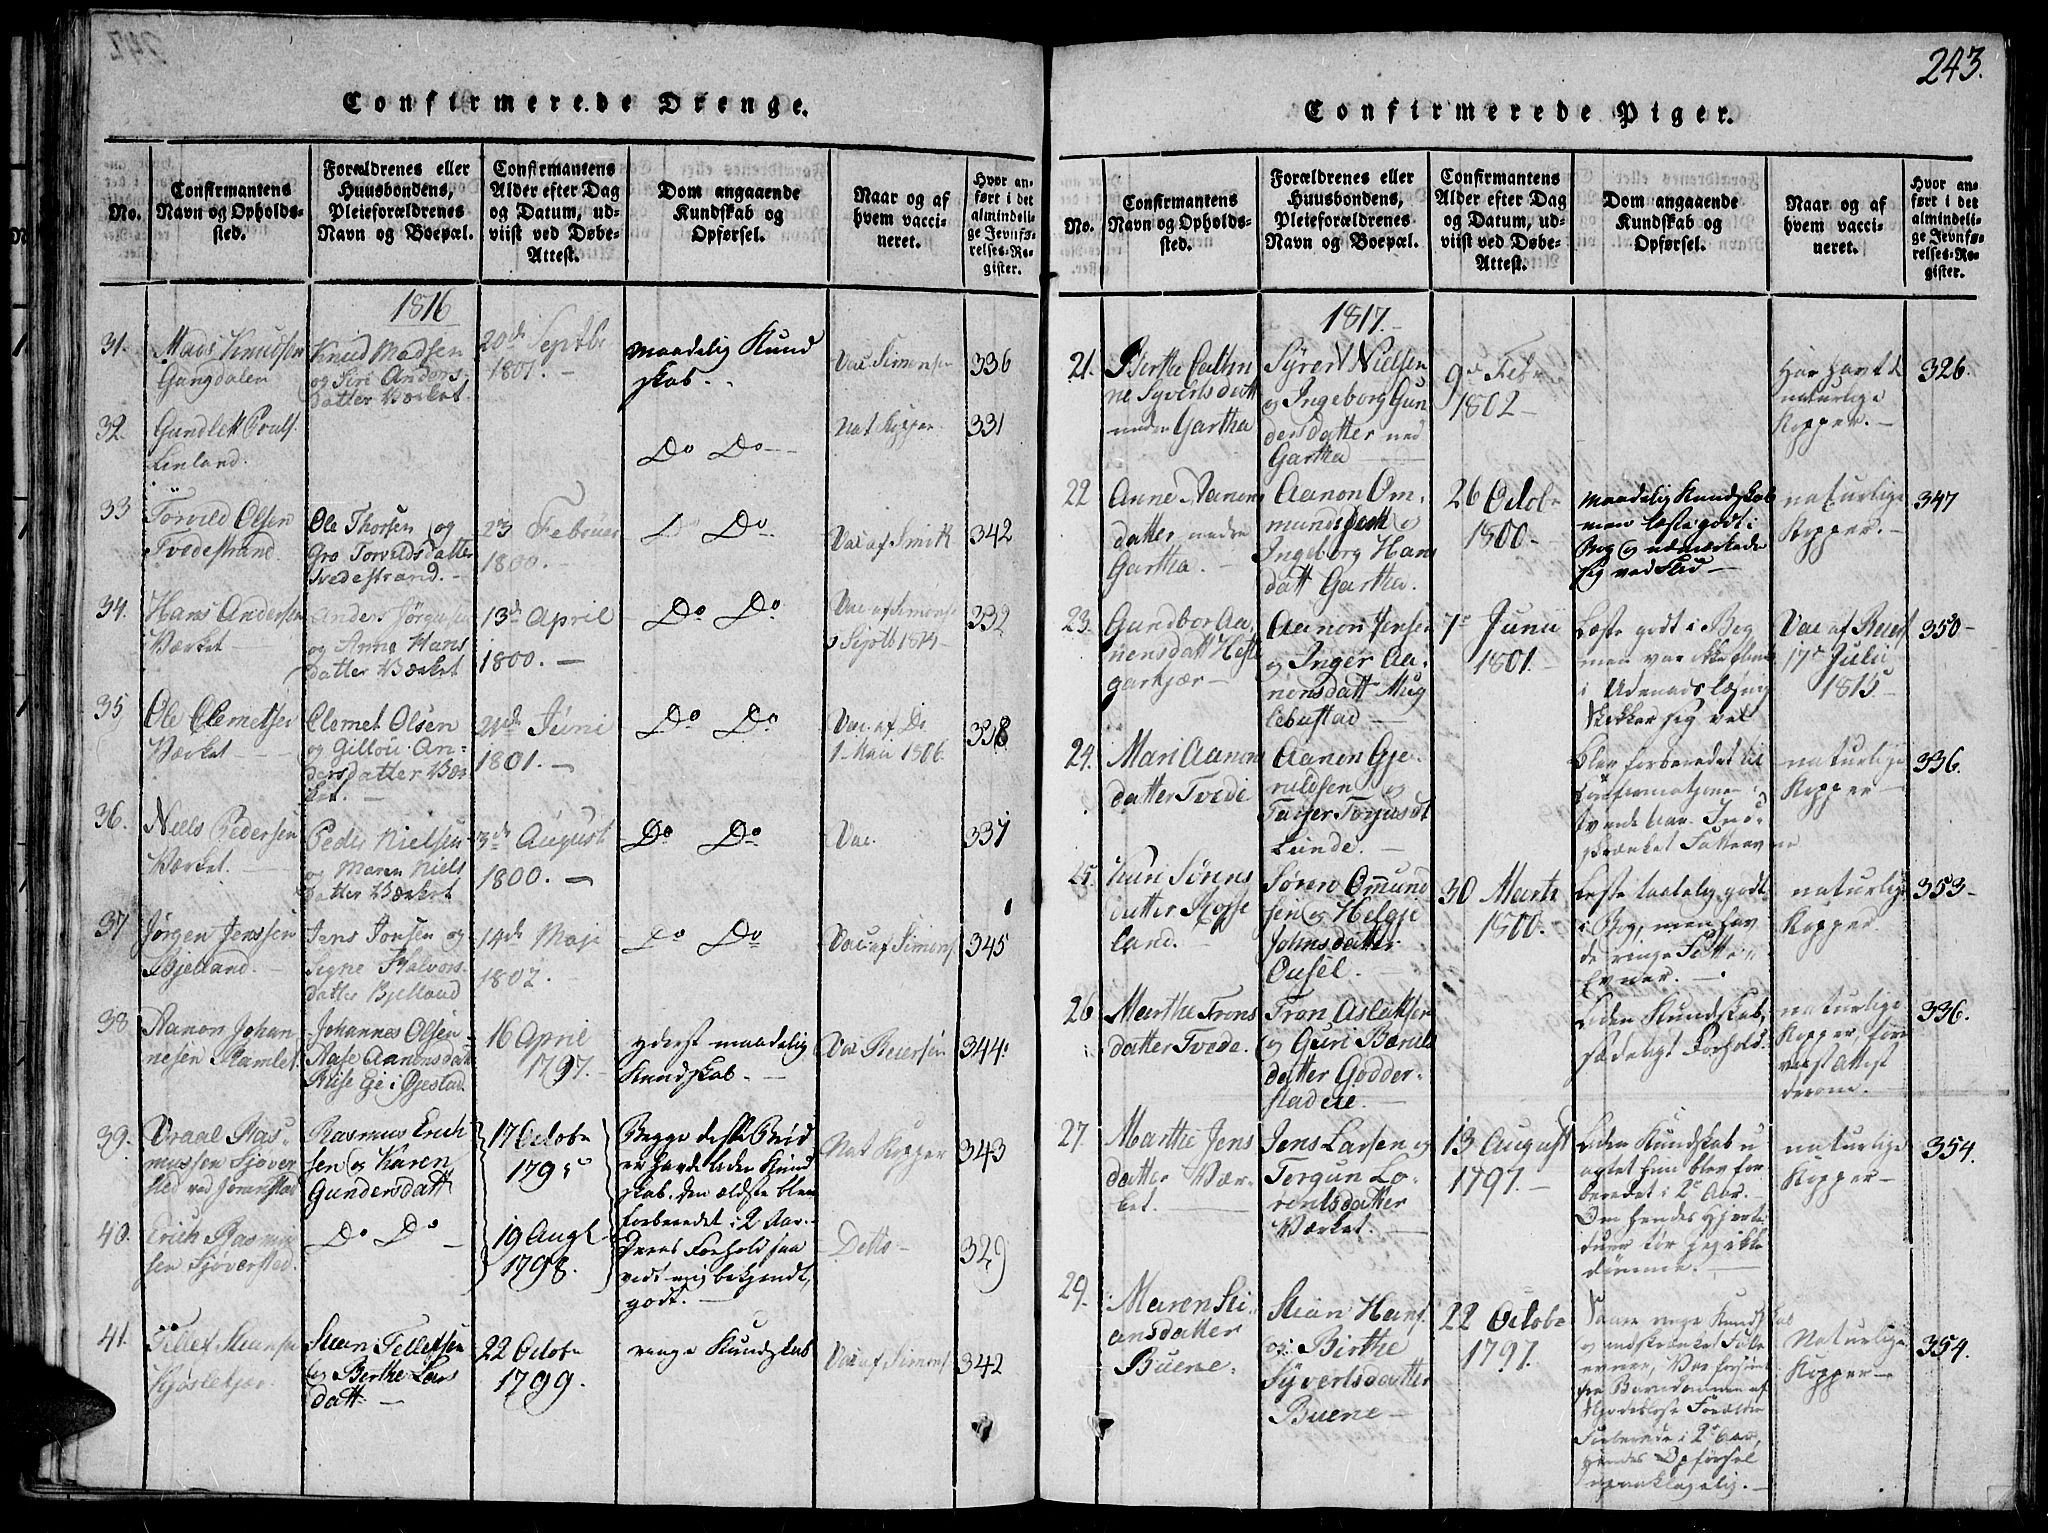 243.
Confirmerede Drenge.
No.
Confirmantens
Navn og Opholds-
sted.
Forældrenes eller
Huusbondens,
Pleieforældrenes
Navn og Boepæl.
Confirmantens
Alder efter Dag
og Datum, ud-
viist ved Døbe-
Attest.
Dom angaaende
Kundskab og
Opførsel.
Naar og af
hvem vacci-
neret.
Hvor an-
ført i det
almindeli-
ge Jevnfø-
relses-Re-
gister.
1816
31.
Mads Knudsen
Gangdalen
Knud Madsen
og Siri Anders-
datter Værket
20de Septbr
1801. -
maadelig Kund
skab.
Vac Simonsen
336
32.
Gundlek Pouls.
Linland.
Do Do
Nat Kopper
331
33
Torvild Olsen
Tvedestrand
Ole Thorsen og
Gro Torvildsdatter
Tvedestrand. -
23 Februar
1800. -
Do Do
Vac af Smith
342
34.
Hans Andersen
Værket -
Anders Jørgensen
og Anne Hans
datter Værket
13de April
1800. -
Do Do
Vac af Simons
332
35
Ole Clemetsen
Værket -
Clemet Olsen
og Gillou An-
dersdatter Vær
ket. -
Juni
1801. -
Do Do
Vac. af Do
1 Mai 1806
338
36.
Niels Pedersen
Værket. -
Peder Nielsen
og Maren Niels
datter Værket
3de August
1800. -
Do Do
Vac.
337
37
Jørgen Jenssen
Bjelland. -
Jens Jonsen og
Signe Halvors
datter Bjelland
14de Maji
1802.
Do Do
Vac af Simons
345
38.
Aanon Johan
nesen Ramlet.
Johannes Olsen
Aase Aanonsdatt
Riise Eje i Øjestad
16 April
1797. -
yderst maadelig
Kundskab. -
Vac Reiersen
344.
39.
Vraal Ras-
mussen Sjøver
sted ved
Rasmus Erich
sen og Karen
Gundersdatt
17 Octobr
1795
Begge disse Brød
re havde liden Kund
skab. Den ældste blev
forberedet i 2 Aar.
Deres Forhold saa
vidt mig bekjendt,
godt. -
Nat Kopper
343
40.
Erich Rasmus
sen Sjøversted.
Do Do -
19 Augt
1798.
Detto -
329
41.
Tellef Steansen
Stean Tellefsen
og Berthe Lars
datt. -
22 Octobr
1799.
ringe Kundskab
Vac af Simons
342
Confirmerede Piger.
No.
Confirmantens
Navn og Opholds-
sted.
Forældrenes eller
Huusbondens,
Pleieforældrenes
Navn og Boepæl.
Confirmantens
Alder efter Dag
og Datum, ud-
viist ved Døbe-
Attest.
Dom angaaende
Kundskab og
Opførsel.
Naar og af
hvem vacci-
neret.
Hvor an-
ført i det
almindeli-
ge Jevnfø-
relses-Re-
gister.
1817. -
21.
Berthe Cathri
ne Syvertsdatt
neder Gartha
Syvert Nielsen
og Ingeborg Gun
dersdatter ned
Gartha
9de Febr
1802 -
Har havt de
naturlige
Kopper. -
326.
22
Anne Aanons
datter nedre
Gartha. -
Aanon Om-
mundsen og
Ingeborg Hans
datt Gartha.
26 Octobr
1800 -
maadelig Kundskab
men læste godt i
Bog og udmærkede
sig ved Flid -
naturlige
Kopper. -
347
23.
Gundbor Aa-
nensdatt Heste
garkjær -
Aanon Jensen
og Inger Aa-
nonsdatt Mug
lebustad -
7de Junii
1801. -
Læste godt i Bog
men var ikke
i Udenadslæsning
skikker sig vel
Vac af Reiers
17de Julii
1815
350 -
24.
Mari Aanons
datter Tvede
Aanon Gje-
ruldsen og
Taajer Torjusdt
Lunde. -
Blev forberedet til
Confirmationen i
tvende Aar. Ind-
skrænket Fatteevne
naturlige
Kopper -
336.
25.
Kari Sørens
datter Mosse
land. -
Søren Omund
sen og Helgje
Johnsdatter
Ousel. -
30 Marts
1800.
Læste taalelig godt
i Bog, men hav
de ringe Fatte-
Evner. -
naturlige
Kopper
353 -
26
Marthe Trons
datter Tvede.
Tron Aslaksen
og Guri Bærulds
datter Godder-
stad eie. -
Liden Kundskab,
sædeligt Forhold.
naturlige
Kopper, fore
viist Attest
derom. -
336.
27.
Marthe Jens
datter Vær-
ket. -
Jens Larsen og
Torgun Lo-
rentsdatter
Værket. -
13 August
1797. -
Liden Kundskab u
agtet hun blev for
beredet i 2de Aar. -
Om hendes Hjerte
tør jeg ikke
dømme. -
naturlige
Kopper -
354.
29.
Maren Ste-
ansdatter
Buene -
Stean Hans
og Birthe
Syvertsdatter
Buene -
22 Octobr
1797.
Saare ringe Kundskab
og indskrænket Fatte
evner, Var forsømt
fra Barndommen af
Forældre
Forberedt i 2de Aar,
Hendes Opførsel
upaaklagelig. -
Naturlige
Kopper -
354.